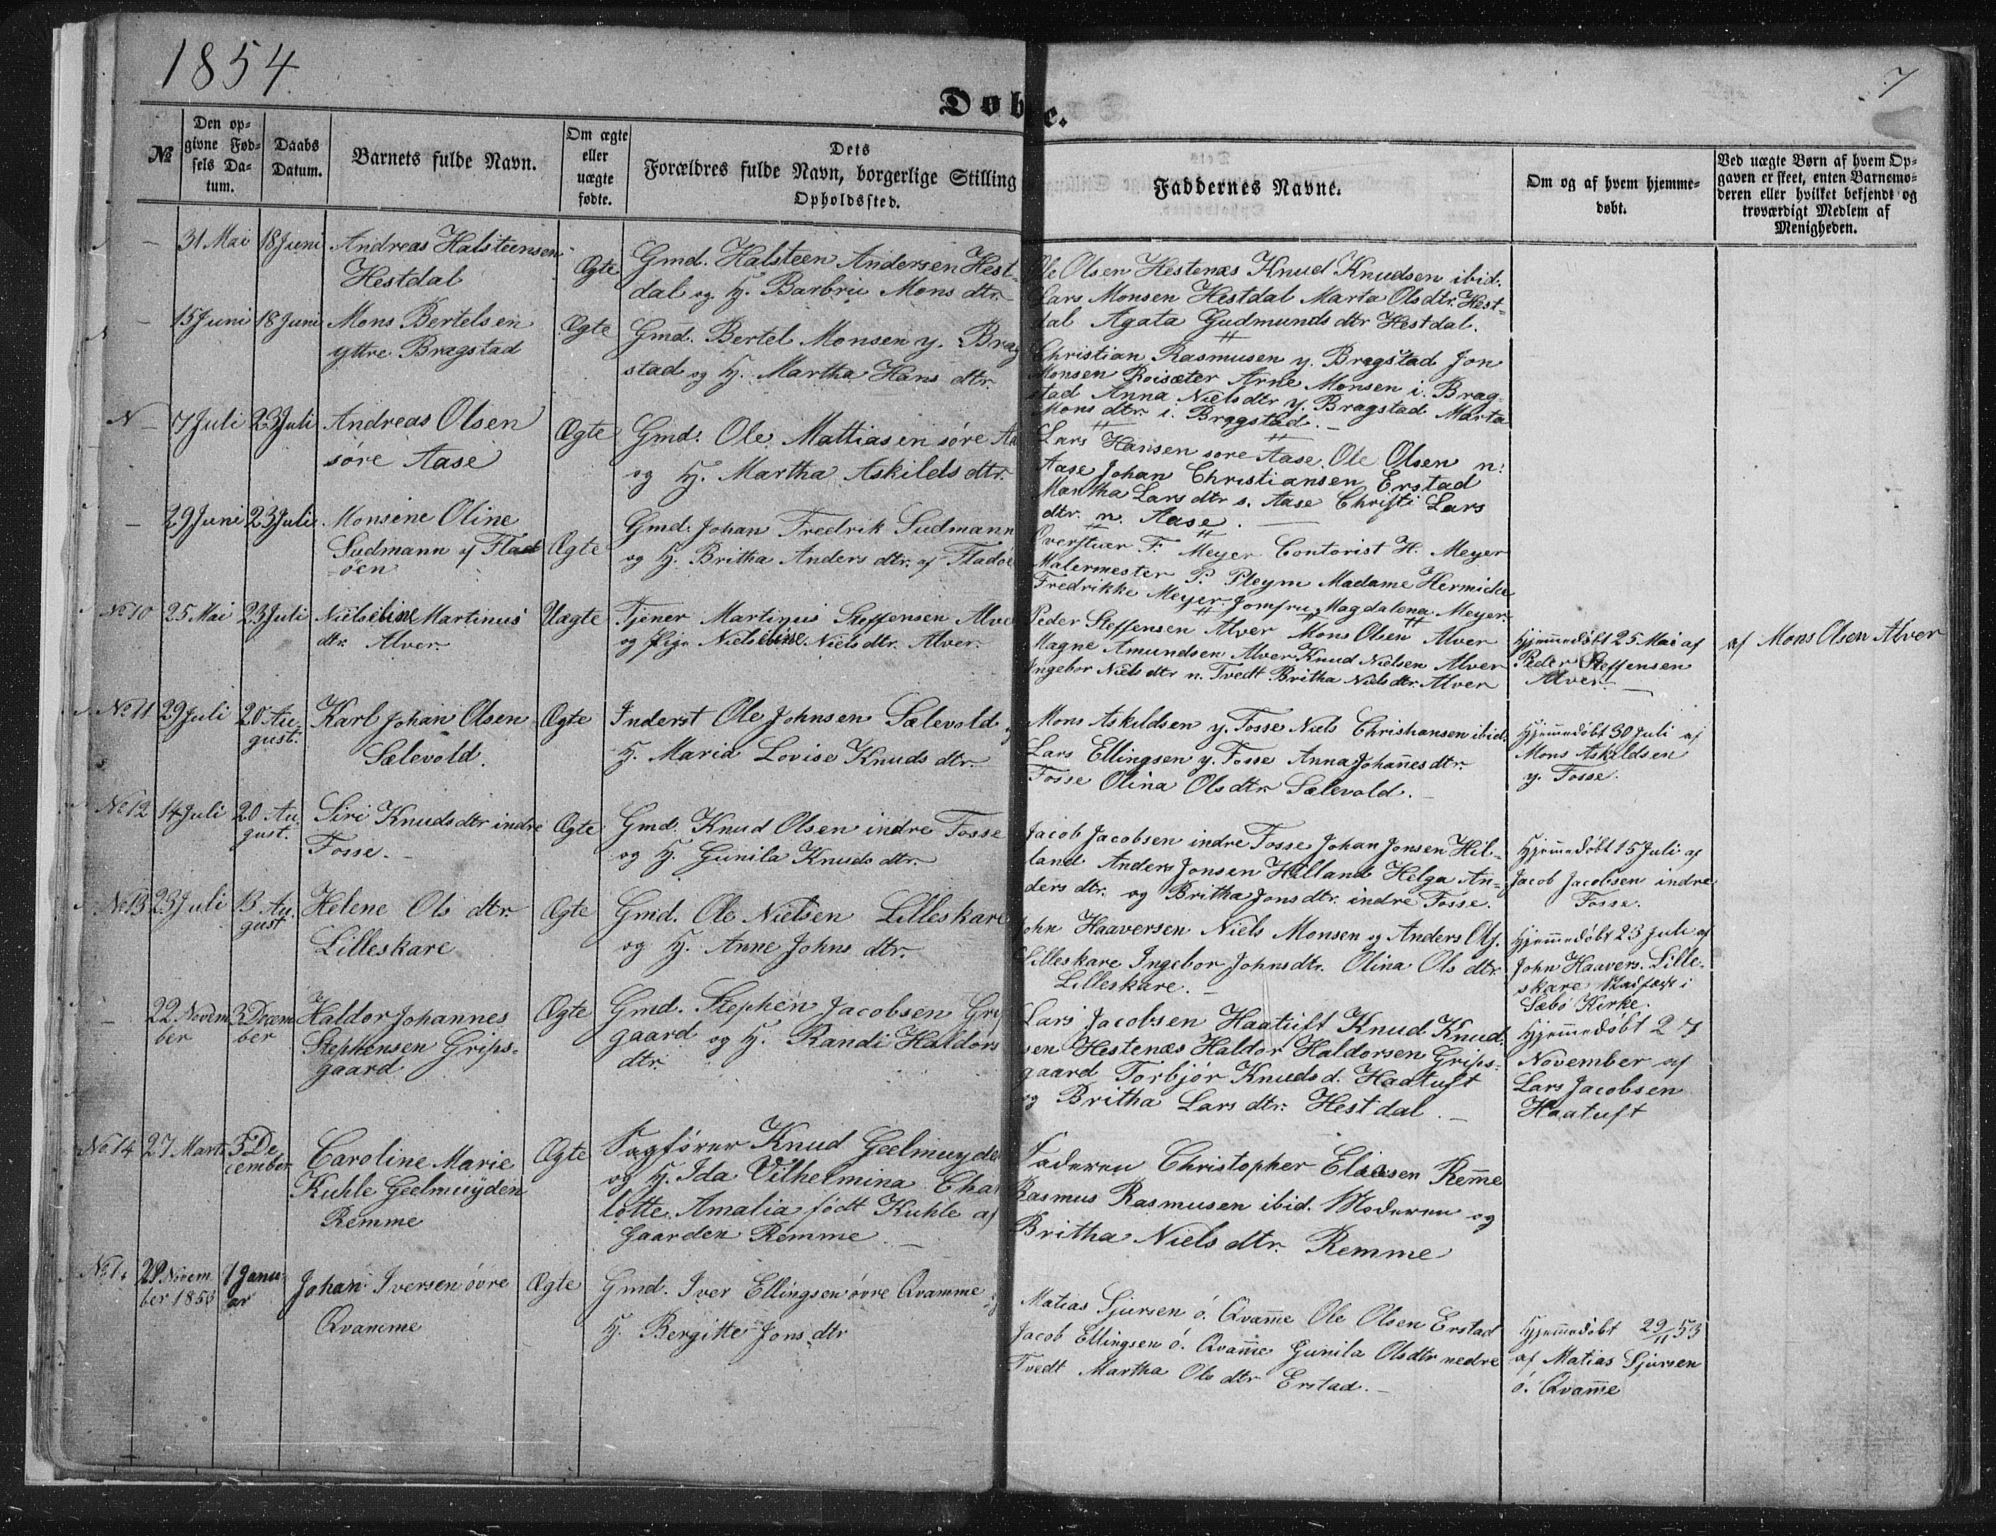 1854.
7
Døbte.
No
Den op-
givne Fød-
sels Da-
tum.
Daabs
Datum.
Barnets fulde Navn.
Om ægte
eller
uægte
fødte.
Dets
Forældres fulde Navn, borgerlige Stilling
Opholdssted.
Faddernes Navne.
Om og af hvem hjemme-
døbt.
Ved uægte Børn af hvem Op-
gaven er skeet, enten Barnemo-
deren eller hvilket bekjendt og
troværdigt Medlem af
Menigheden.
– 31 Mai 18 Juni Andreas Halsteensen
Hestdal
Ægte
Gmd. Halsteen Andersen Hest-
dal og H. Barbru Mons dtr.
Ole Olsen Hestenæs Knud Knudsen ibid.
Lars Monsen Hestdal Marta Olsdtr. Hest-
dal Agata Gudmunds dtr Hestdal.
– 15 Juni 18 Juni Mons Bertelsen
yttre Bragstad
Ægte
Gmd. Bertel Monsen y. Brag
stad og H. Martha Hans dtr
Christian Rasmusen y. Bragstad Jon
Monsen Roisæter Arne Monsen i. Brag-
stad Anna Nielsdtr y. Bragstad Marta
Mons dtr i. Bragstad. –
N – 7 Juli 23 Juli Andreas Olsen
søre Aase
Ægte
Gmd. Ole Mattiasen søre Aa
og H. Martha Askilds dtr.
Lars Hansen søre Aase. Ole Olsen n.
Aase Johan Christiansen Erstad
Martha Lars dtr s. Aase Christi Lars
dtr. n. Aase. –
– 29 Juni 23 Juli Monsine Oline
Sudmann y Flad
øen
Ægte
Gmd. Johan Fredrik Sudmann
og H. Britha Anders dtr. af Fladøe
F. Meyer Contorist H. Meyer
Malermester P. Pleym Madame
Fredrikke Meyer. Jomfru Magdalena Meyer
No 10 25 Mai 23 Juli Nielseline Martinus
dtr. Alver.
Uægte
Tjener Martinus Steffensen Alve
og Pige Nielseline Niels dtr. Alver.
Peder Steffensen Alver Mons Olsen Alver
Magne Amundsen Alver Knud Nielsen Alver
Ingebor Niels dtr n. Tvedt Britha Niels dtr. Alver
Hjemmedøbt 25 Mai af
Peder Steffensen
Alver. –
af Mons Olsen Alver
No 11 29 Juli 20 Au-
gust.
Karl Johan Olsen
Sælevold.
Ægte
Inderst Ole Johnsen Sælevold
H. Maria Lovise Knuds dtr.
Mons Askildsen y. Fosse Niels Christiansen ibid.
Lars Ellingsen y. Fosse Anna Johannes dtr.
Fosse Olina Ols dtr Sælevold. –
Hjemmedøbt 30 Juli af
Mons Askildsen
y. Fosse.
No 12 14 Juli 20 Au-
gust.
Siri Knuds dtr indre
Fosse. –
Ægte
Gmd. Knud Olsen indre Fosse
og H. Gunila Knuds dtr.
Jacob Jacobsen indre Fosse Johan Jonsen Hil-
land Anders Jonsen Hilland Helga An-
ders dtr. og Britha Jons dtr. indre Fosse.
Hjemmedøbt 15 Juli af
Jacob Jacobsen indre
Fosse.
No 13 23 Juli 13 Au-
gust
Helene Ols dtr.
Lilleskare
Ægte
Gmd. Ole Nielsen Lilleskare
og H. Anne Johns dtr.
John Haaversen Niels Monsen og Anders Ols.
Lilleskare Ingebor Johns dtr. Olina Ols dtr
Lilleskare. –
Hjemmedøbt 23 Juli af
John Haavers. Lille-
skare Stadfæst i
Sæbø Kirke.
– 22. Novem
ber
3 Decem
ber
Haldor Johannes
Stephensen Grips-
gaard
Ægte
Gmd. Stephen Jacobsen Grip
gaard og H. Randi Haldors
dtr.
Lars Jacobsen Haatuft Knud Knud-
sen Hestenæs Haldor Haldorsen Grips-
gaard Torbjør Knuds d. Haatuft
og Britha Lars dtr. Hestdal. –
Hjemmedøbt 27
November af
Lars Jacobsen
Haatuft
No. 14 27 Marts 3 De
cember
Caroline Marie
Kuhle Geelmuyden
Remme
Ægte
Sagfører Knud Geelmuyde
og H. Ida Vilhelmina Char
lotte. Amalia født Kuhle af
Gaarden Remme. –
Faderen Christopher Eliasen Remme
Rasmus Rasmusen ibid. Moderen og
Britha Niels dtr. Remme
No 1. 29 Novem
ber 1853
1 Janu-
ar
Johan Iversen øvre
Qvamme
Ægte
Gmd. Iver Ellingsen øvre Qvamme
H. Bergitte Jons dtr
Matias Sjursen ö. Qvamme Ole Olsen Erstad
Jacob Ellingsen ö. Qvamme Gunila Olsdtr nedre
Tvedt Martha Ols dtr Erstad. –
Hjemmedøbt 29/11 53
af Matias Sjursen
ö. Qvamme